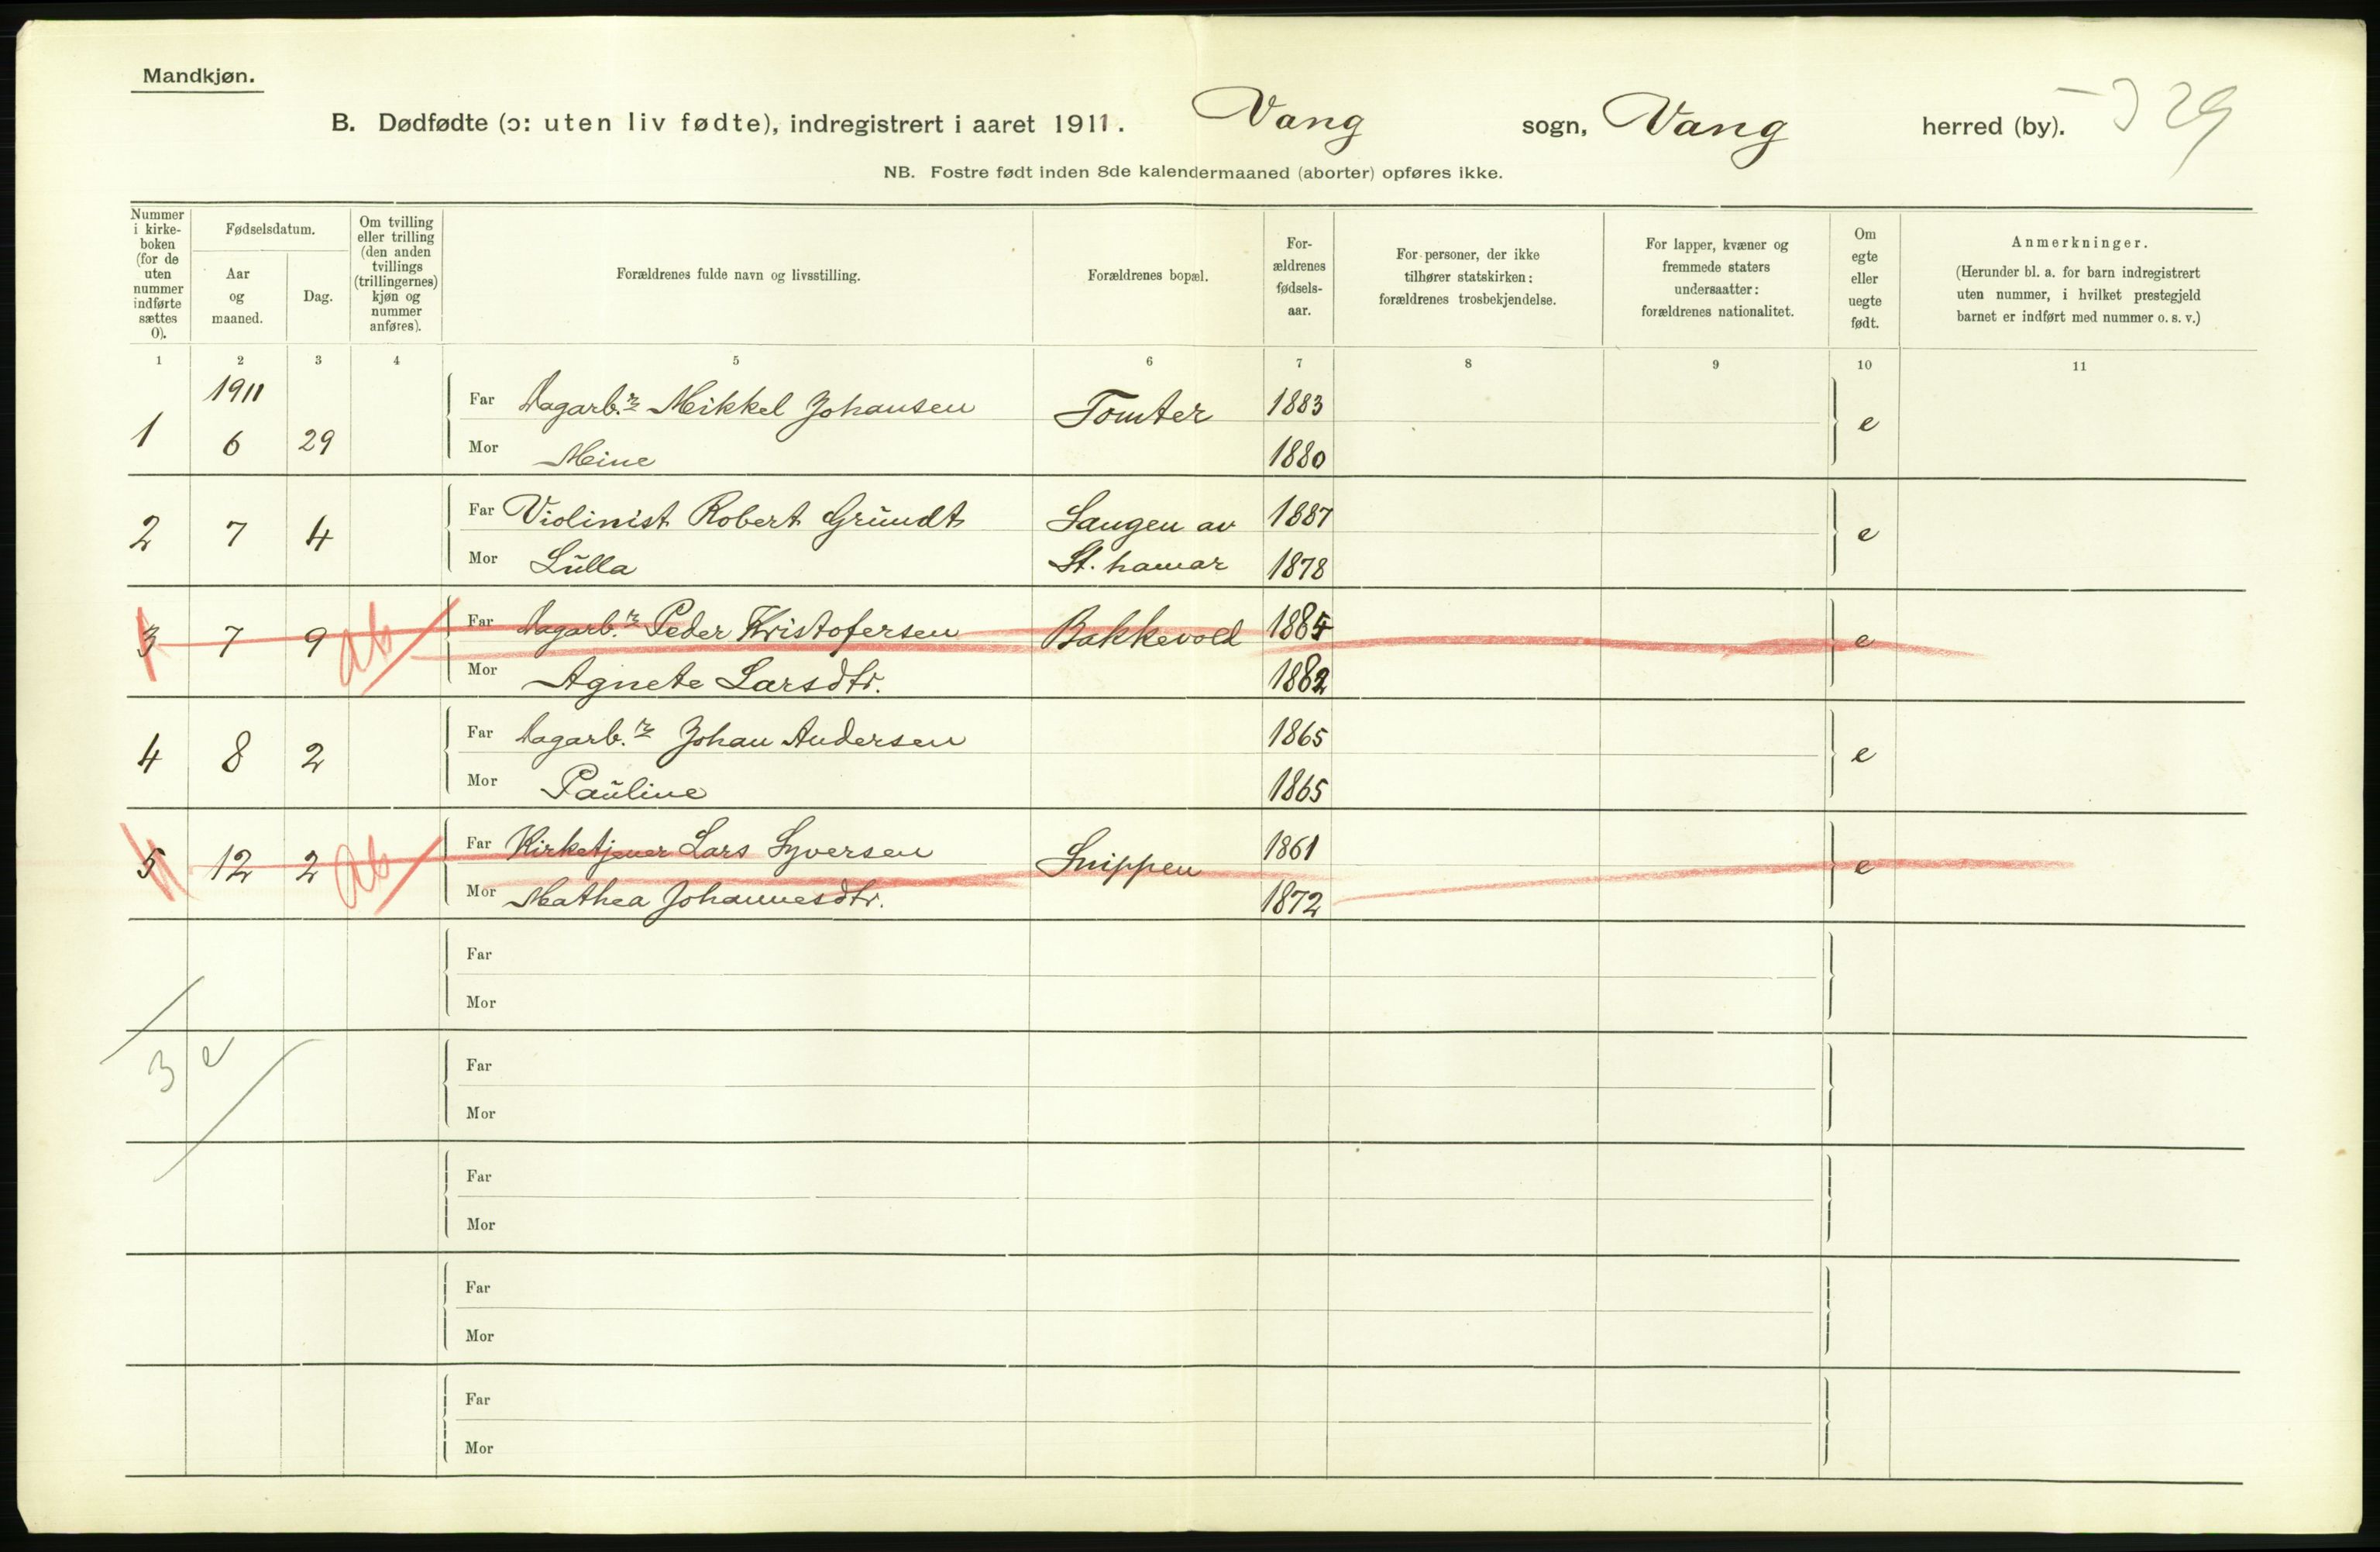 Mandkjøn.
B. Dødfødte (ɔ: uten liv fødte), indregistrert i aaret 1911. Vang sogn, Vang herred (by). 29
NB. Fostre født inden 8de kalendermaaned (aborter) opføres ikke.
Nummer i kirke- boken (for de uten nummer indførte sættes 0).
Fødselsdatum.
Aar og maaned.
Dag.
Om tvilling eller trilling (den anden tvillings (trillingernes) kjøn og nummer anføres).
Forældrenes fulde navn og livsstilling.
Forældrenes bopæl.
For- ældrenes fødsels- aar.
For personer, der ikke tilhører statskirken: forældrenes trosbekjendelse.
For lapper, kvæner og fremmede staters undersaatter: forældrenes nationalitet.
Om egte eller uegte født.
Anmerkninger.
(Herunder bl. a. for barn indregistrert uten nummer, i hvilket prestegjeld barnet er indført med nummer o. s. v.)
1 2 3 4 5 6 7 8 9 10 11
1911
1 6 29 Far Dagarb.r Mikkel Johansen Tomter 1883 e
Mor Meine 1880
2 7 4 Far Violinist Robert Gründt Sangen av 1887 e
Mor Lŭlla St. hamar 1878
3 7 9 ab Far Dagarb.r Peder Kristofersen Bakkevold 1884 e
Mor Agnete Larsdtr. 1882
4 8 2 Far Dagarb.r Johan Andersen 1865 e
Mor Paŭline 1865
5 12 2 ab Far Kirketjener Lars Syversen Snippen 1861 e
Mor Mathea Johannesdtr. 1872
Far
Mor
3 e
Far
Mor
Far
Mor
Far
Mor
Far
Mor